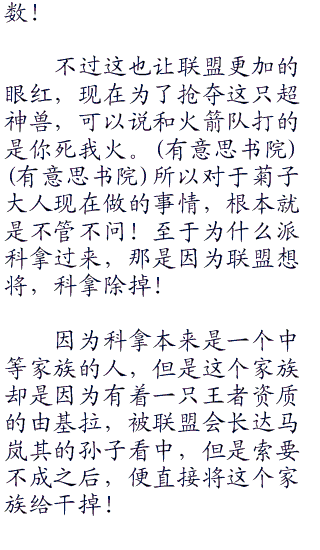 数！
不过这也让联盟更加的
眼红，现在为了抢夺这只超
神兽，可以说和火箭队打的
是你死我火。(有意思书院)
(有意思书院)所以对于菊子
大人现在做的事情，根本就
是不管不问！至于为什么派
科拿过来，那是因为联盟想
将，科拿除掉！
因为科拿本来是一个中
等家族的人，但是这个家族
却是因为有着一只王者资质
的由基拉，被联盟会长达马
岚其的孙子看中，但是索要
不成之后，便直接将这个家
族给干掉！